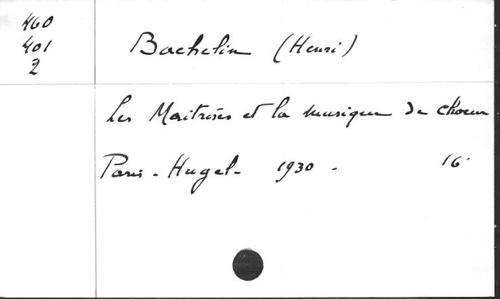 460
401
2
Bachelin (Henri)
Les Maitrises et la musique de choeur
Paris - Hugel - 1930 - 16°